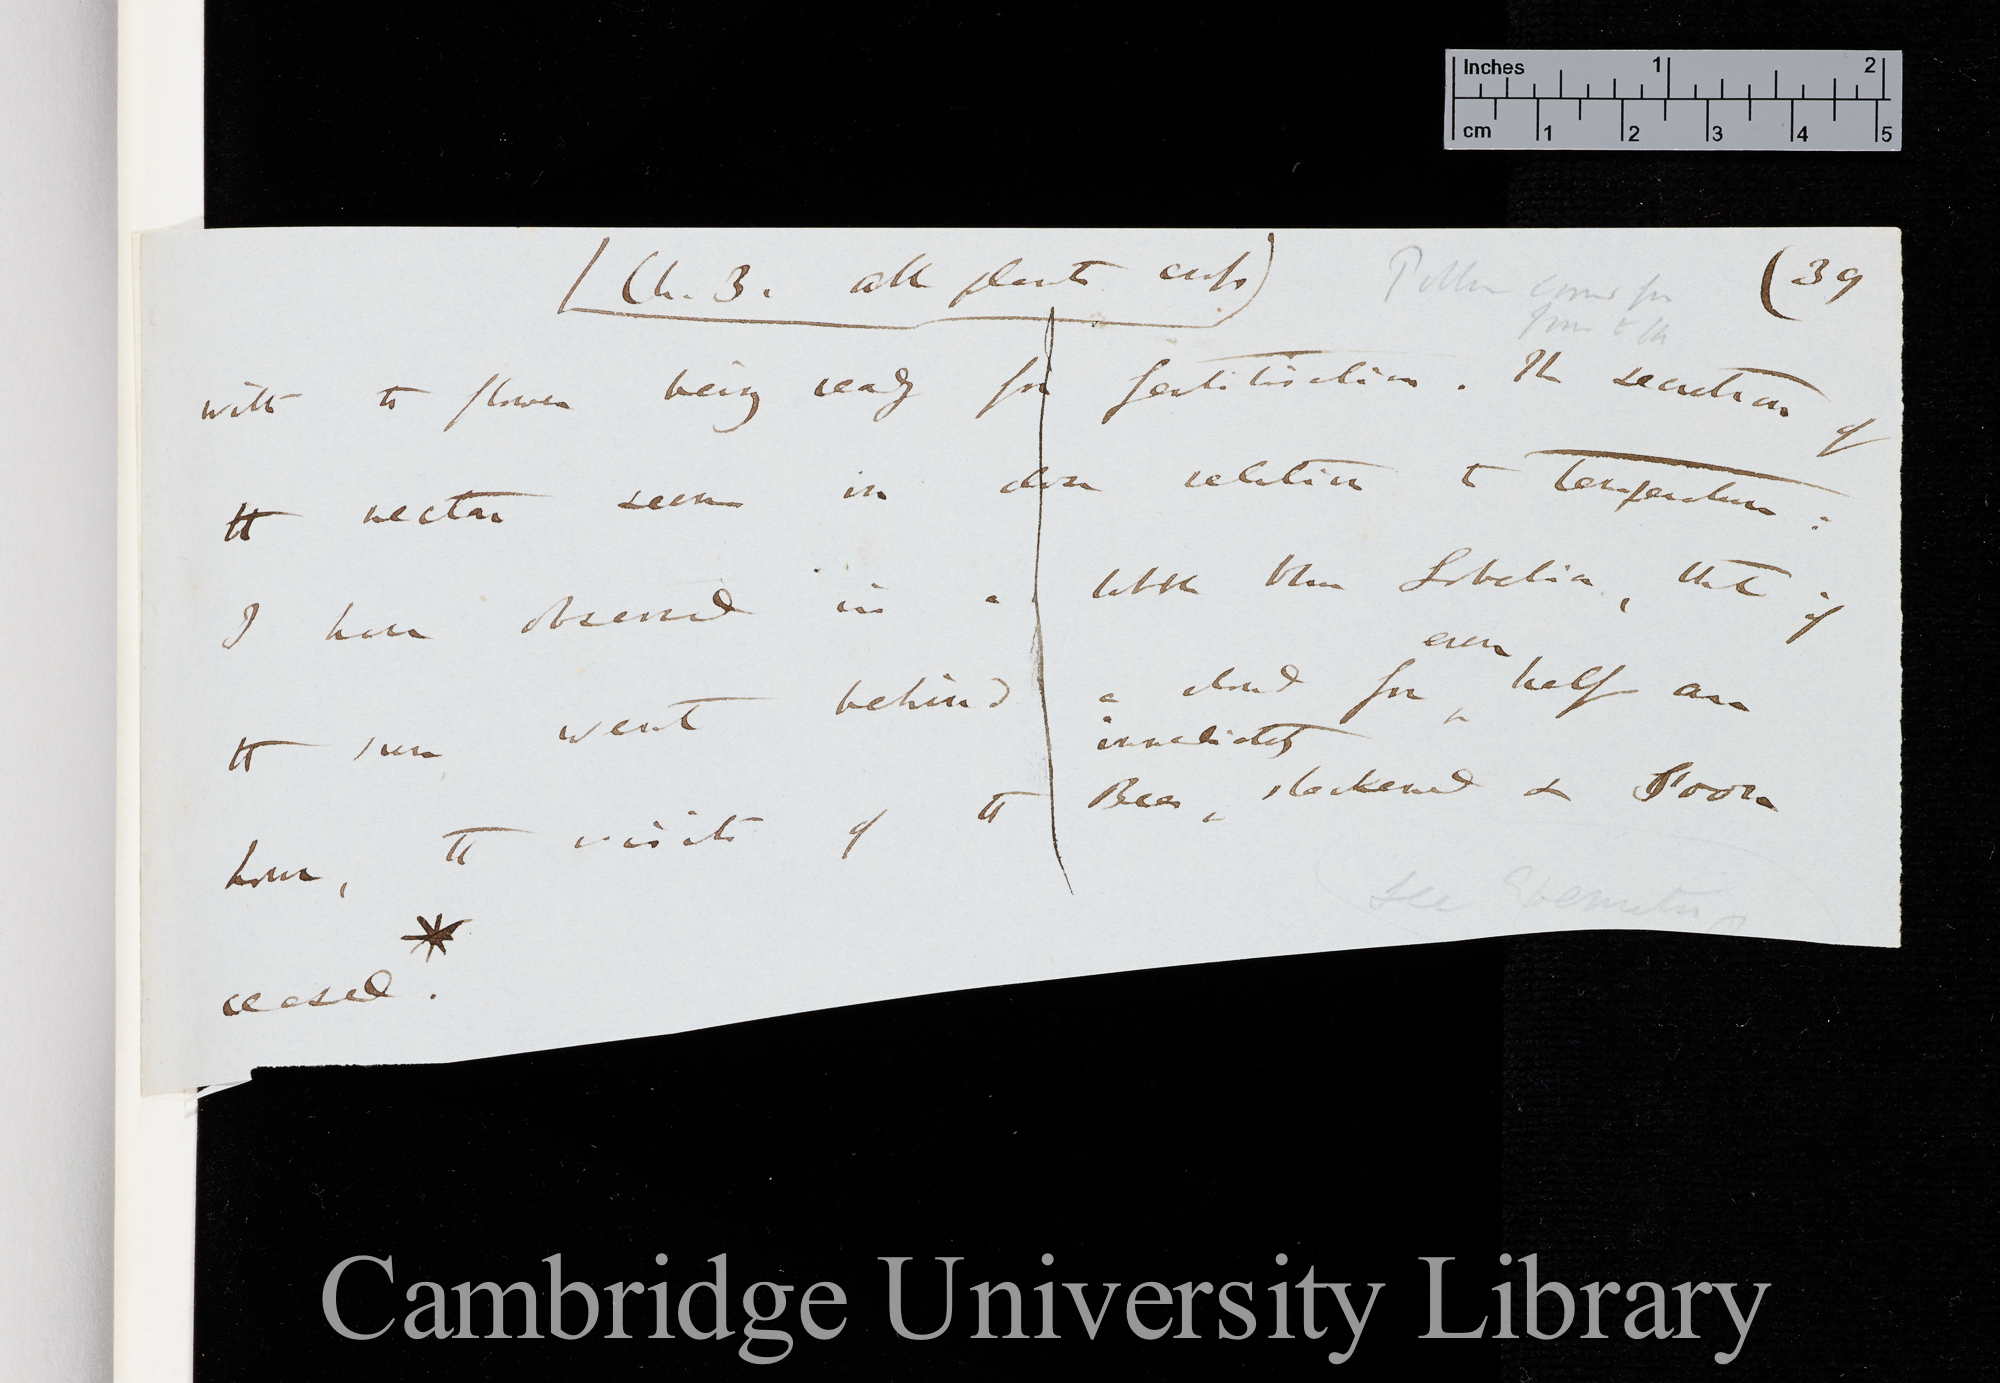 Inches 1 2
cm 1 2 3 4 5
(Ch. 3. all plants cross)
(39
Pollen
with the flower being ready for fertilisation. The secretion of
the nectar seems in close relation to temperature:
I have observed in a little blue Lobelia, that if
even
the sun went behind a cloud for half an
immediately
hour, the visits of the Bees, slackened & soon
ceased.*
see
Cambridge University Library